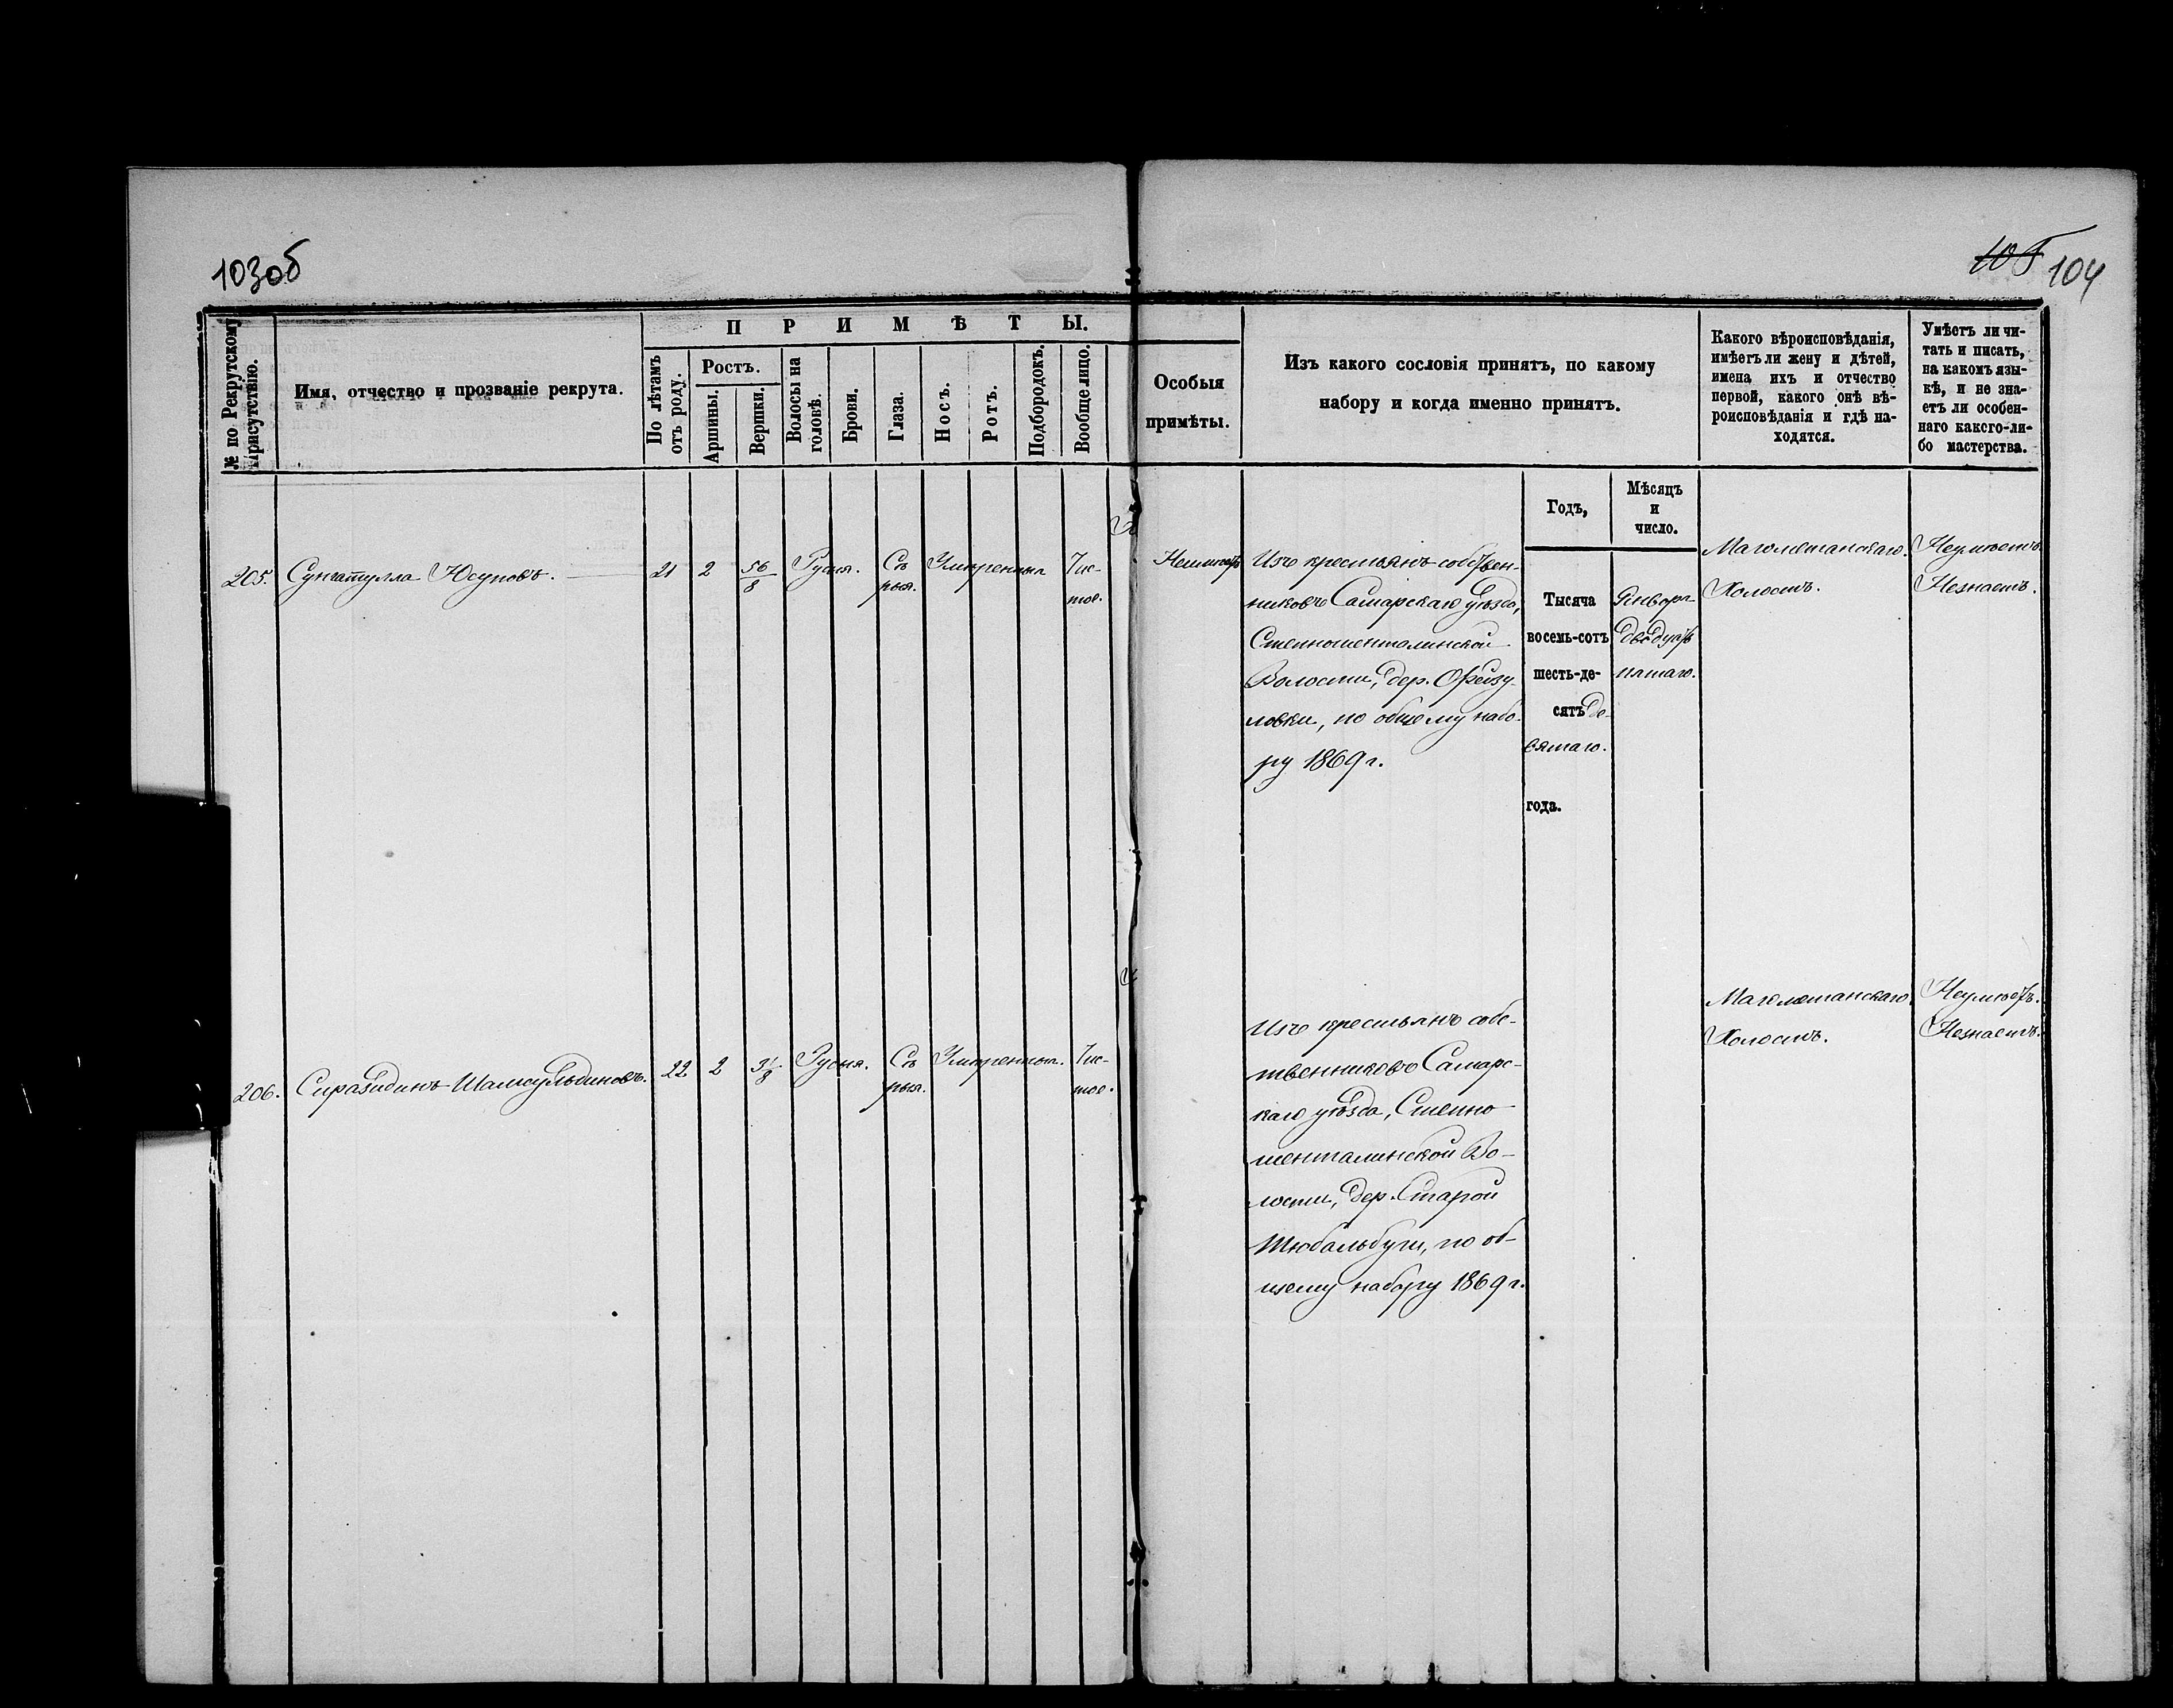 103об
105 104
№ по Рекрутскому Присутствію.
Имя, отчество и прозваніе рекрута.
ПРИМѢТЫ.
По лѣтамъ отъ роду.
Ростъ.
Аршины.
Вершки.
Волосы на головѣ.
Брови.
Глаза.
Носъ.
Ротъ.
Подбородокъ.
Вообще лицо.
Особыя
примѣты.
Изъ какого сословія принятъ, по какому
набору и когда именно принятъ.
Какого вѣроисповѣданія,
имѣетъ ли жену и дѣтей,
имена ихъ и отчество
первой, какого онѣ вѣ-
роисповѣданія и гдѣ на-
ходятся.
Умѣетъ ли чи-
тать и писать,
на какомъ язы-
кѣ, и не зна-
етъ ли особен-
наго какого-ли-
бо мастерства.
Годъ,
Мѣсяцъ
и
число.
205. Сунгатулла Юсуповъ.
21 2 56/8 Русыя. Сѣ
рыя.
Умѣренныя
Чис-
тое.
Изъ крестьянъ собствен-
никовъ Самарскаго уѣзда,
Степношенталинской
Волости, дер.
ловки, по общему набо-
ру 1869 г.
Тысяча
восемь-сотъ
шесть-де-
сятъ де-
вятаго.
года.
Января
двадцать
пятаго.
Магометанскаго.
Холостъ.
Неумѣетъ.
Незнаетъ.
206. Сиразидинъ Шамсульдиновъ.
22 2 3 1/8 Русыя. Сѣ
рыя.
Умѣренныя.
Чис-
тое.
Изъ крестьянъ собс-
твенниковъ Самарс-
каго уѣзда, Степно
шенталинской Во-
лости, дер. Старой
Тюбальбуги, по об-
щему набору 1869 г.
Магометанскаго.
Холостъ.
Неумѣетъ.
Незнаетъ.